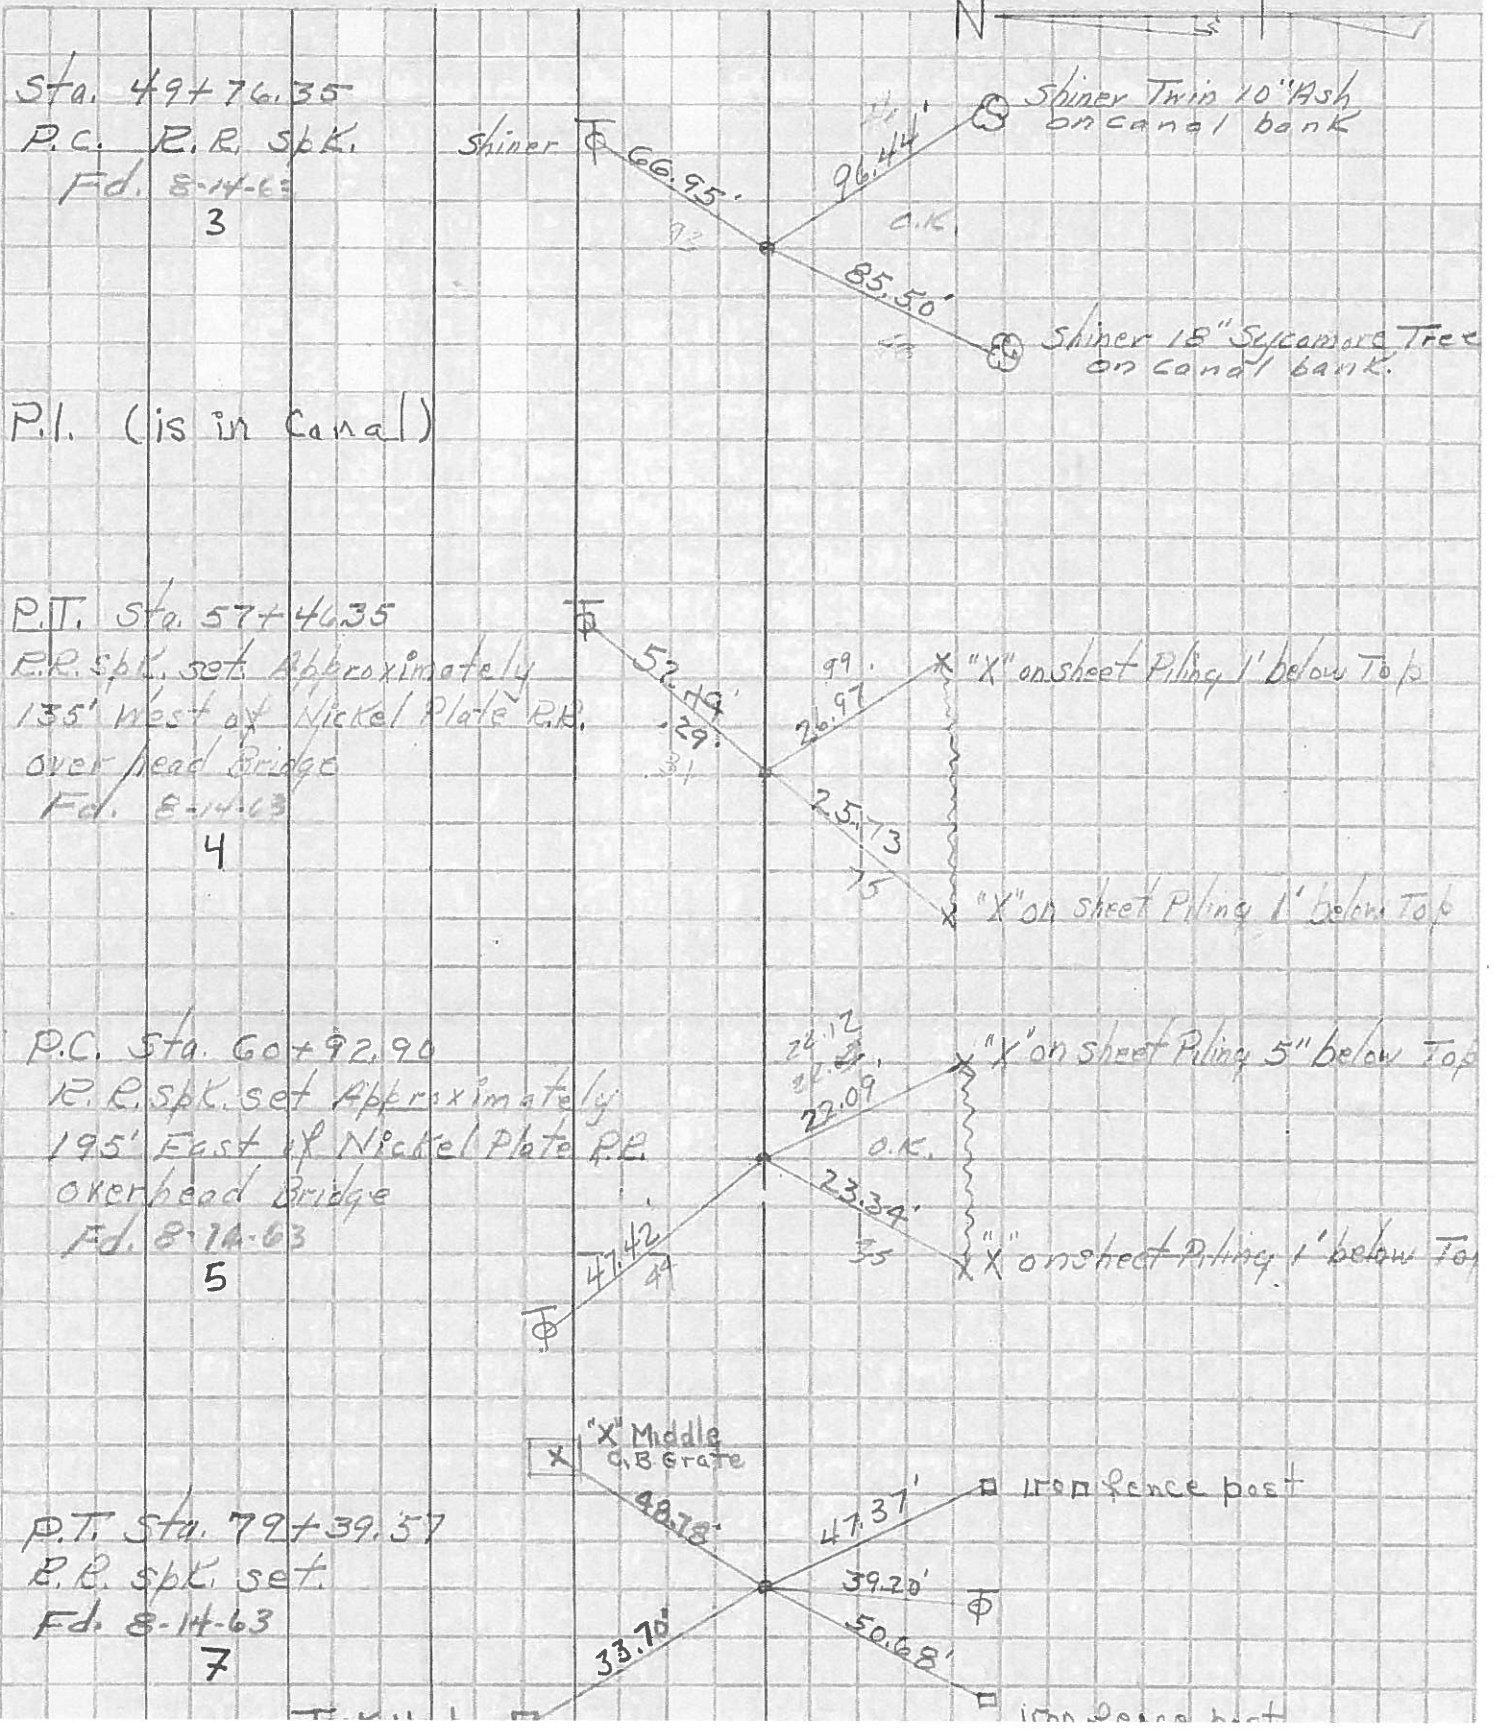 N
Sta. 49+76.35
P.C. R.R. Spk.
Fd. 8-14-63
3
Shiner
66.95'
93
96.44'
O.K.
85.50'
Shiner Twin 10" Ash
on canal bank
Shiner 18" Sycamore Tree
on canal bank.
P.I. (is in Canal)
P.T. Sta. 57+46.35
R.R. Spk. set Approximately
135' West of Nickel Plate R.R.
over head Bridge
Fd. 8-14-63
4
52.49'
.29'
.31
99.
26.97
25.73
75
"X" on sheet Piling 1' below Top
"X" on sheet Piling 1' below Top
P.C. Sta. 60+92.90
R.R. Spk. set Approximately
195' East of Nickel Plate R.R.
overhead Bridge
Fd. 8-14-63
5
22.09
O.K.
23.34'
35
47.42'
44
"X" on sheet Piling 5" below Top
"X" on sheet Piling 1' below Top
"X" Middle
C.B. Grate
X
P.T. Sta. 79+39.57
R.R. spk. set.
Fd. 8-14-63
7
48.78'
47.37'
39.20'
50.68'
33.70'
iron fence post
iron fence post